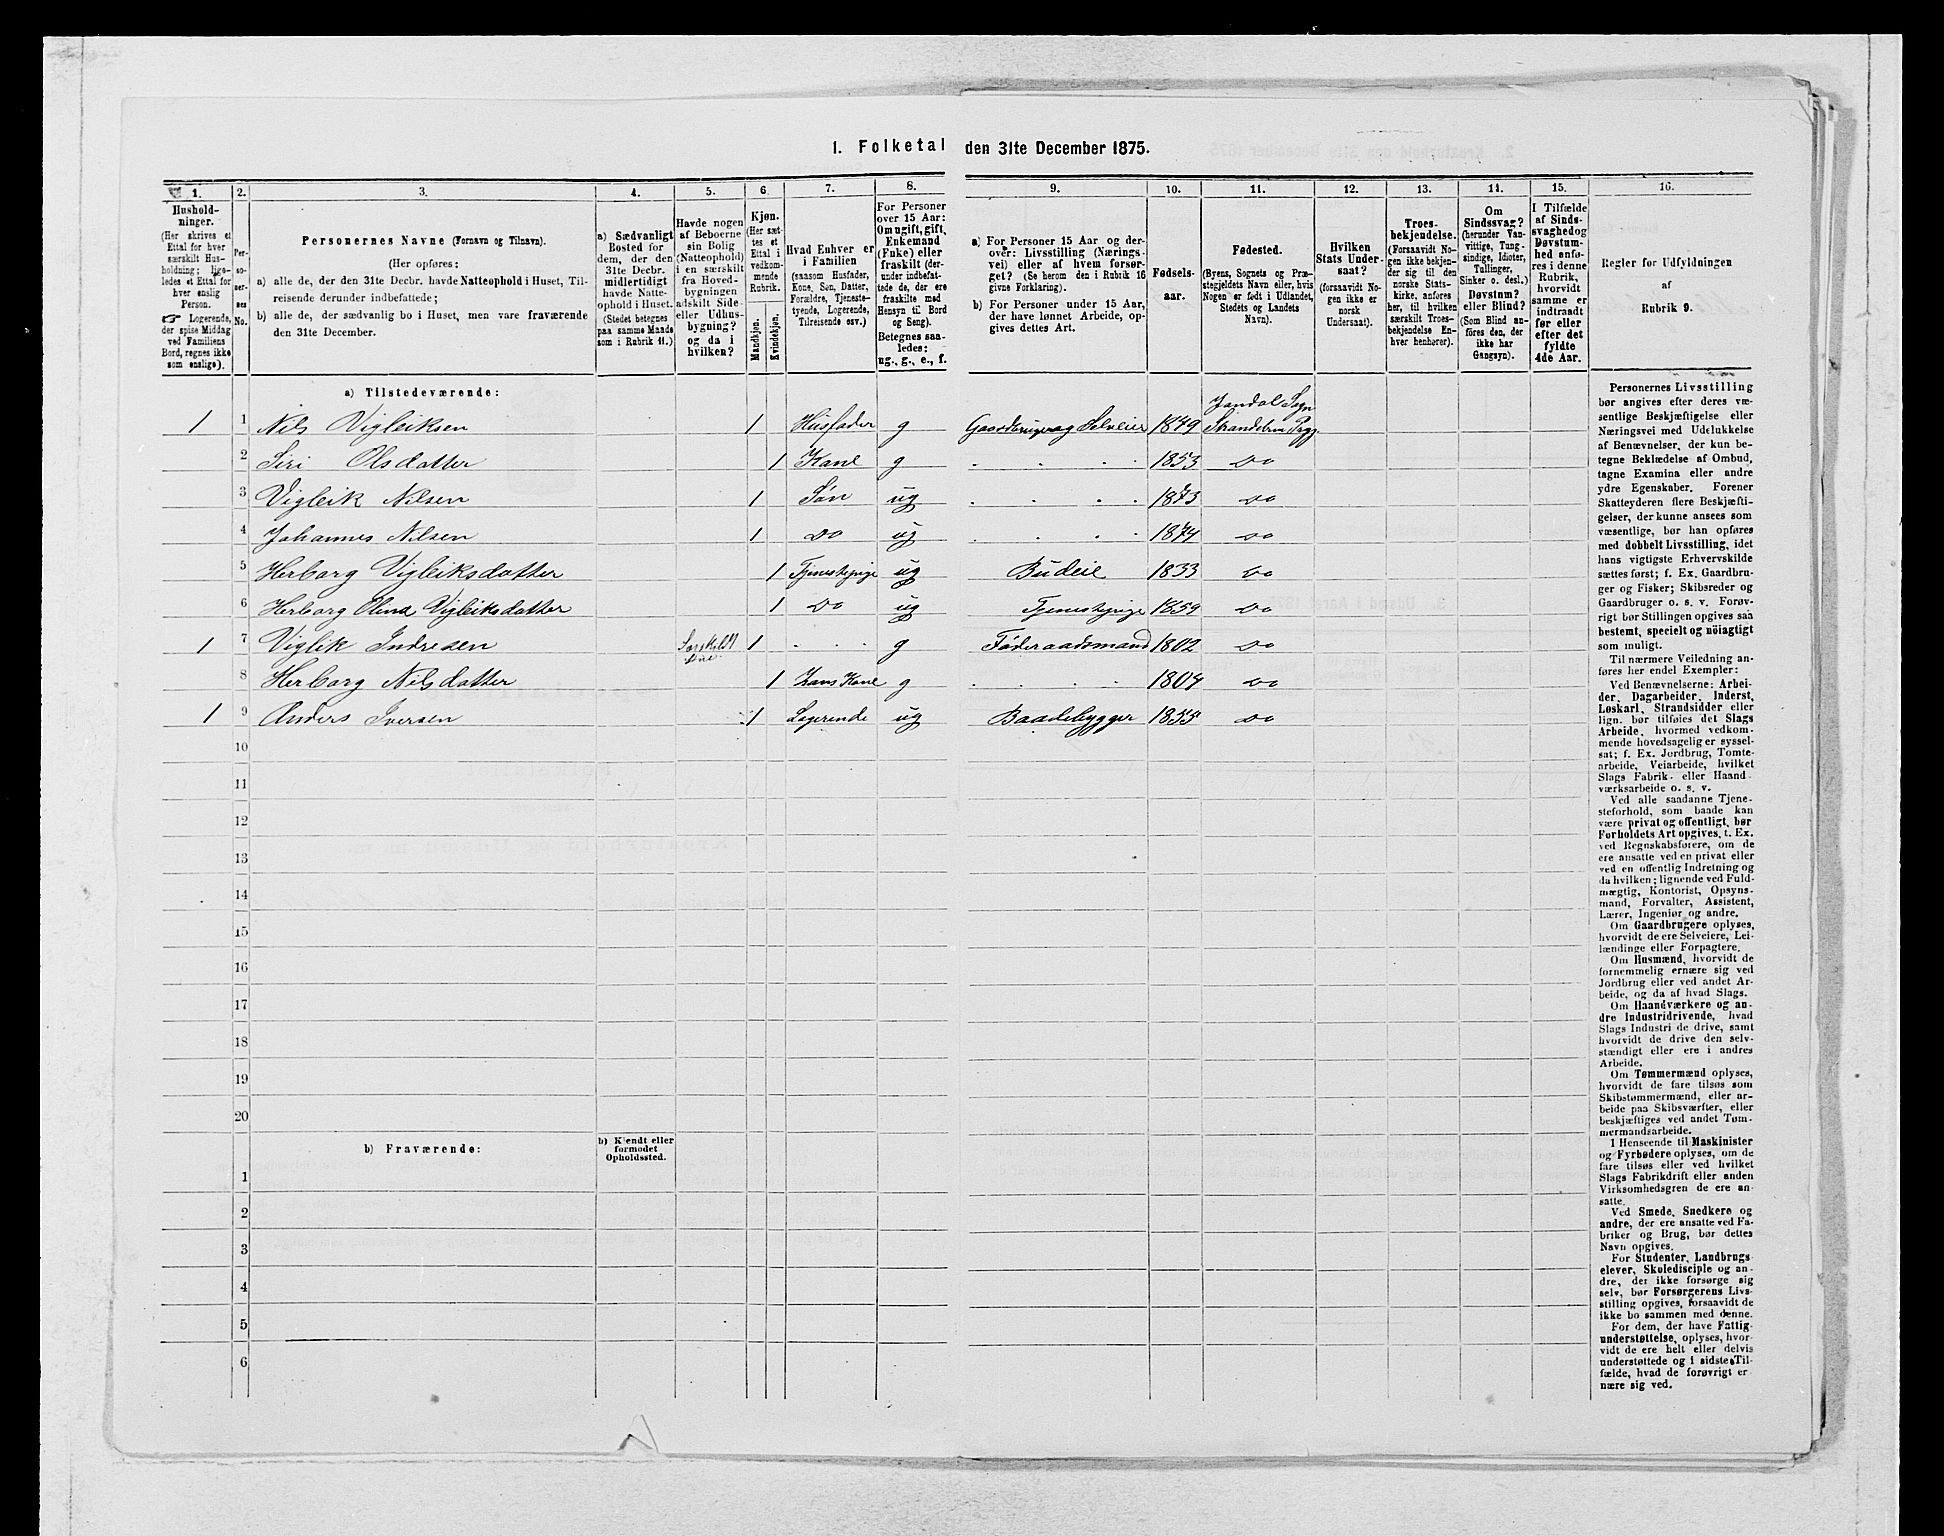 1. Folketal den 31te December 1875.
1. 2. 3. 4. 5. 6. 7. 8. 9. 10. 11. 12. 13. 14. 15. 16.
Hushold-
ninger.
(Her skrives et
Ettal for hver
særskilt Hus-
holdning; lige-
ledes et Ettal for
hver enslig
Person.
☞ Logerende,
der spise Middag
ved Familiens
Bord, regnes ikke
som enslige).
Per-
so-
ner-
nes
No.
Personernes Navne (Fornavn og Tilnavn).
(Her opføres:
a) alle de, der den 31te Decbr. havde Natteophold i Huset, Til-
reisende derunder indbefattede;
b) alle de, der sædvanlig bo i Huset, men vare fraværende
den 31te December.
a) Sædvanligt
Bosted for
dem, der den
31te Decbr.
midlertidigt
havde Natte-
ophold i Huset.
(Stedet betegnes
paa samme Maade
som i Rubrik 11.)
Havde nogen
af Beboerne
sin Bolig
(Natteophold)
i en særskilt
fra Hoved-
bygningen
adskilt Side-
eller Udhus-
bygning?
og da i
hvilken?
Kjøn.
(Her sæt-
tes et
Ettal i
vedkom-
mende
Rubrik.
Mandkjøn.
Kvindekjøn.
Hvad Enhver er
i Familien
(saasom Husfader,
Kone, Søn, Datter,
Forældre, Tjeneste-
tyende, Logerende,
Tilreisende osv.)
For Personer
over 15 Aar:
Om ugift, gift,
Enkemand
(Enke) eller
fraskilt (der-
under indbefat-
tede de, der ere
fraskilte med
Hensyn til Bord
og Seng).
Betegnes saa-
ledes:
ug., g., e., f.
a) For Personer 15 Aar og der-
over: Livsstilling (Nærings-
vei) eller af hvem forsør-
get? (Se herom den i Rubrik 16
givne Forklaring).
b) For Personer under 15 Aar,
der have lønnet Arbeide, op-
gives dettes Art.
Fødsels-
aar.
Fødested.
(Byens, Sognets og Præ-
stegjeldets Navn eller, hvis
Nogen er født i Udlandet,
Stedets og Landets
Navn).
Hvilken
Stats Under-
saat?
(forsaavidt No-
gen ikke er
norsk
Undersaat).
Troes-
bekjendelse.
(Forsaavidt No-
gen ikke bekjen-
der sig til den
norske Stats-
kirke, anføres
her, til hvilken
særskilt Troes-
bekjendelse En-
hver henhører).
Om
Sindssvag?
(herunder Van-
vittige, Tung-
sindige, Idioter,
Tullinger,
Sinker o. desl.)
Døvstum?
eller Blind?
(Som Blind an-
føres den, der
ikke har
Gangsyn).
I Tilfælde
af Sinds-
svaghed og
Døvstum-
hed anfø-
res i denne
Rubrik,
hvorvidt
samme er
indtraadt
før eller
efter det
fyldte
4de Aar.
Regler for Udfyldningen
af
Rubrik 9.
a) Tilstedeværende:
1 1 Nils Vigleiksen 1 Husfader g Gaardbruger og Selveier 1849 Jondal Sogn Strandebrm Prgj.
2 Siri Olsdatter 1 Kone g 1853 do
3 Vigleik Nilsen 1 Søn ug 1873 do
4 Johannes Nilsen 1 do ug 1874 do
5 Herborg Vigleiksdatter 1 Tjenestepige ug Budeie 1833 do
6 Herborg Olina Vigleiksdatter 1 do ug Tjenestepige 1859 do
1 7 Viglik Indresen Særskildt 1 g Føderaadsmand 1802 do
8 Herborg Nilsdatter 1 hans Kone g 1804 do
1 9 Anders Iversen 1 Logerende ug Baadebygger 1855 do
10
11
12
13
14
15
16
17
18
19
20
b) Fraværende:
b) Kjendt eller
formodet
Opholdssted.
1
2
3
4
5
6
Personernes Livsstilling
bør angives efter deres væ-
sentlige Beskjæftigelse eller
Næringsvei med Udelukkelse
af Benævnelser, der kun be-
tegne Beklædelse af Ombud,
tagne Examina eller andre
ydre Egenskaber. Forener
Skatteyderen flere Beskjæfti-
gelser, der kunne ansees som
væsentlige, bør han opføres
med dobbelt Livsstilling, idet
hans vigtigste Erhvervskilde
sættes først; f. Ex. Gaardbru-
ger og Fisker; Skibsreder og
Gaardbruger o. s. v. Forøv-
rigt bør Stillingen opgives saa
bestemt, specielt og nöiagtigt
som muligt.
Til nærmere Veiledning an-
føres her endel Exempler:
Ved Benævnelserne: Arbei-
der, Dagarbeider, Inderst,
Løskarl, Strandsidder eller
lign. bør tilføies det Slags
Arbeide, hvormed vedkom-
mende hovedsagelig er syssel-
sat; f. Ex. Jordbrug, Tomte-
arbeide, Veiarbeide, hvilket
Slags Fabrik- eller Haand-
værksarbeide o. s. v.
Ved alle saadanne Tjene-
steforhold, som baade kan
være privat og offentligt, bør
Forholdets Art opgives, t. Ex.
ved Regnskabsførere, om de
ere ansatte ved en privat eller
ved en offentlig Indretning og
da hvilken; lignende ved Fuld-
mægtig, Kontorist, Opsyns-
mand, Forvalter, Assistent,
Lærer, Ingeniør og andre.
Om Gaardbrugere oplyses,
hvorvidt de ere Selveiere, Lei-
lændinge eller Forpagtere.
Om Husmænd, hvorvidt de
fornemmelig ernære sig ved
Jordbrug eller ved andet Ar-
beide, og da af hvad Slags.
Om Haandværkere og an-
dre Industridrivende, hvad
Slags Industri de drive, samt
hvorvidt de drive den selv-
stændigt eller ere i andres
Arbeide.
Om Tømmermænd oplyses,
hvorvidt de fare tilsøs som
Skibstømmermænd, eller ar-
beide paa Skibsværfter, eller
beskjæftiges ved andet Tøm-
mermandsarbeide.
I Henseende til Maskinister
og Fyrbødere oplyses, om de
fare tilsøs eller ved hvilket
Slags Fabrikdrift eller anden
Virksomhedsgren de ere an-
satte.
Ved Smede, Snedkere og
andre, der ere ansatte ved Fa-
briker og Brug, bør dettes
Navn opgives.
For Studenter, Landbrugs-
elever, Skoledisciple og an-
dre, der ikke forsørge sig
selv, bør Forsørgerens Livs-
stilling opgives, forsaavidt de
ikke bo sammen med denne.
For dem, der have Fattig-
understøttelse, oplyses, hvor-
vidt de ere helt eller delvis
understøttede og i sidste Til-
fælde, hvad de forøvrigt er-
nære sig ved.